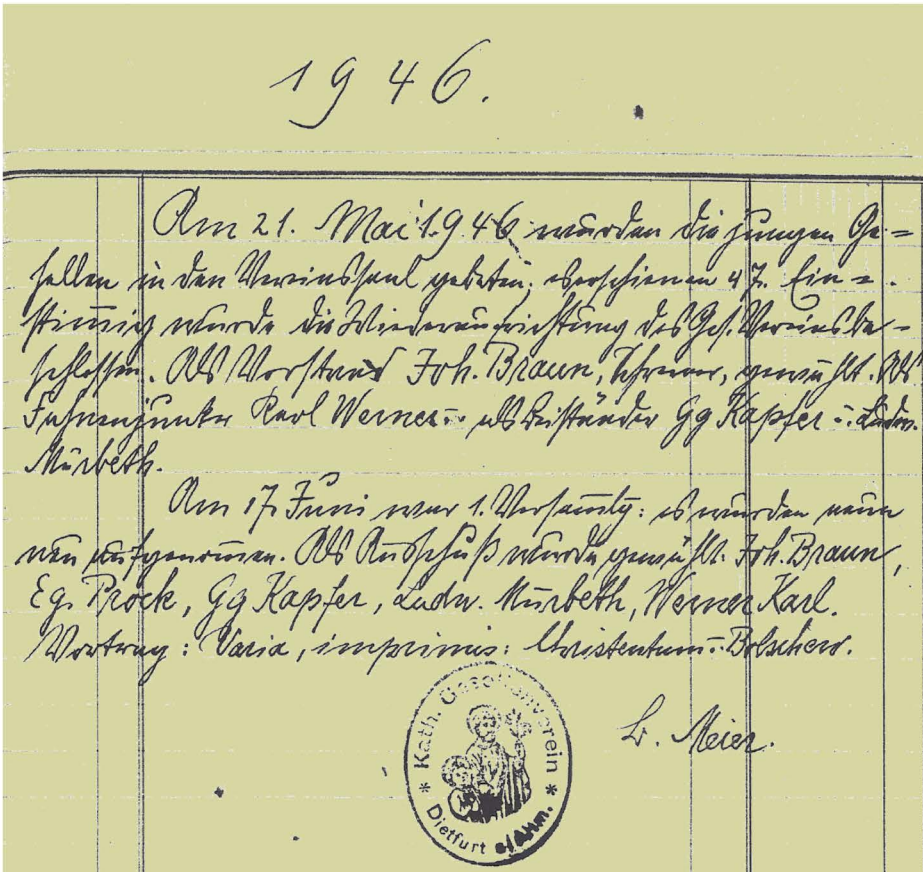 1946.
Am 21. Mai 1946 wurden die jungen Ge=
sellen in den Vereinssaal gebeten; erschienen 47. Ein=
stimmig wurde die Wiederaufrichtung des Ges. Vereins be=
schlossen. Als Vorstand Joh. Braun, Schreiner, gewählt. Als
Fahnenjunker Karl Werner u. als Beiständer Gg Kapfer u. Ludw.
Mürbeth.
Am 17. Juni war 1. Versammlg: es wurden neun
neu aufgenommen. Als Ausschuß wurde gewählt: Joh. Braun,
Eg. Prock, Gg Kapfer, Ludw. Mürbeth, Werner Karl.
Vortrag: Varia, imprimis: Christentum u. Bolschew.
Meier.
* Kath. Gesellenverein *
Dietfurt a/Altm.